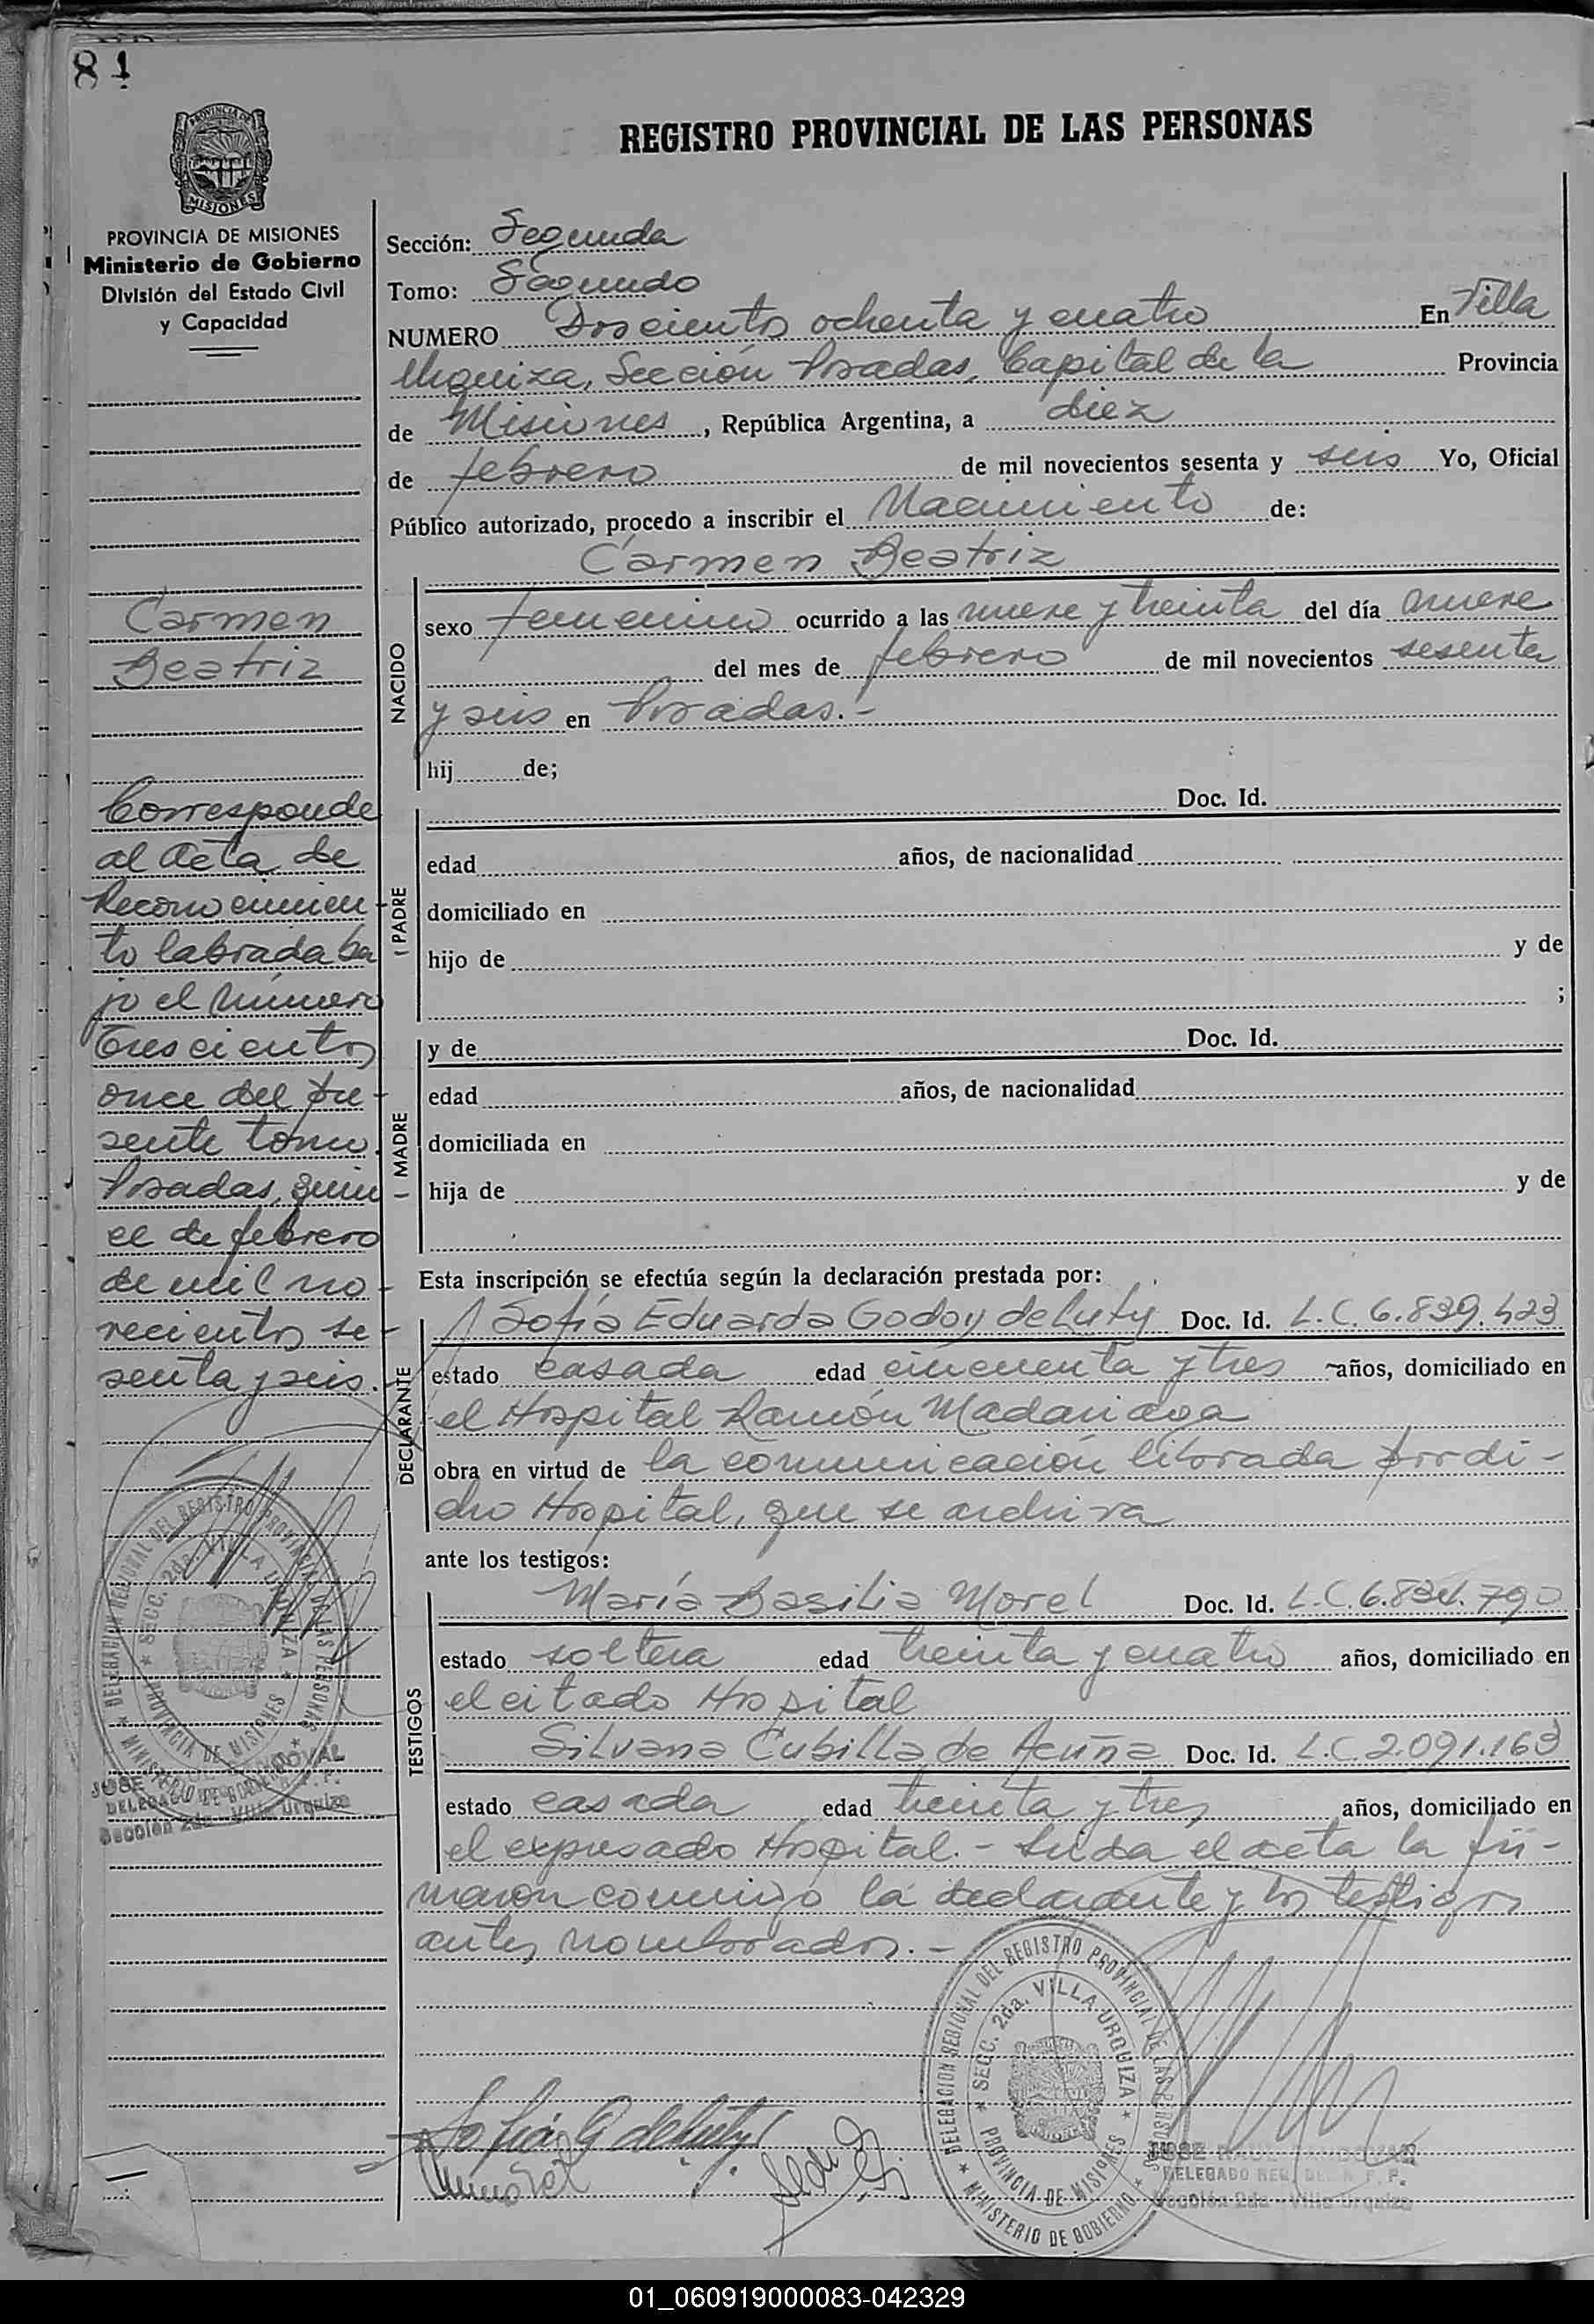 81
PROVINCIA DE MISIONES
REGISTRO PROVINCIAL DE LAS PERSONAS
PROVINCIA DE MISIONES
Ministerio de Gobierno
División del Estado Civil
y Capacidad
Sección: Segunda
Tomo: Segundo
NUMERO Doscientos ochenta y cuatro En Villa
Urquiza, Sección Posadas, Capital de la Provincia
de Misiones, República Argentina, a diez
de febrero de mil novecientos sesenta y seis Yo, Oficial
Público autorizado, procedo a inscribir el Nacimiento de:
Carmen Beatriz
Carmen
Beatriz
NACIDO
sexo femenino ocurrido a las nueve y treinta del día nueve
del mes de febrero de mil novecientos sesenta
y seis en Posadas.-
hij de;
Corresponde
al Acta de
Reconocimien-
to labrada ba
jo el número
Trescientos
once del pre-
sente tomo.
Posadas, quin
ce de febrero
de mil no-
vecientos se-
senta y seis.
PADRE
Doc. Id.
edad años, de nacionalidad
domiciliado en
hijo de y de
;
MADRE
y de Doc. Id.
edad años, de nacionalidad
domiciliada en
hija de y de
Esta inscripción se efectúa según la declaración prestada por:
DECLARANTE
Sofía Eduarda Godoy de Luty Doc. Id. L.C. 6.839.423
estado casada edad cincuenta y tres años, domiciliado en
el Hospital Ramón Madariaga
obra en virtud de la comunicación librada por di-
cho Hospital, que se archiva
ante los testigos:
TESTIGOS
María Basilia Morel Doc. Id. L.C. 6.834.790
estado soltera edad treinta y cuatro años, domiciliado en
el citado Hospital
Silvana Cubilla de Acuña Doc. Id. L.C. 2.091.163
estado casada edad treinta y tres años, domiciliado en
el expresado Hospital.- Leida el acta la fir-
maron conmigo la declarante y los testigos
antes nombrados.-
DELEGACION REGIONAL DEL REGISTRO PROVINCIAL DE LAS PERSONAS
SECC. 2da. VILLA URQUIZA
PROVINCIA DE MISIONES
MINISTERIO DE GOBIERNO
JOSE SANDOVAL
DELEGADO
Sección 2da. Villa Urquiza
DELEGACION REGIONAL DEL REGISTRO PROVINCIAL DE LAS PERSONAS
SECC. 2da. VILLA URQUIZA
PROVINCIA DE MISIONES
MINISTERIO DE GOBIERNO
Sofía G de Luty
JOSE RAUL SANDOVAL
DELEGADO REG. DEL R. P. P.
Sección 2da. Villa Urquiza
01_060919000083-042329